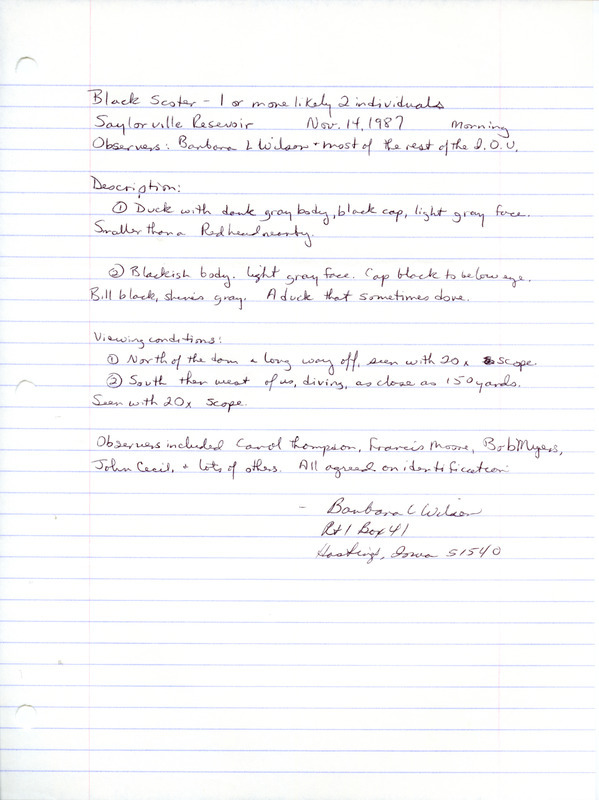 Black Scoter - 1 or more likely 2 individuals
Saylorville Resevoir Nov. 14, 1987 Morning
Observers: Barbara L Wilson + most of the rest of the I.O.U.
Description:
① Duck with dark gray body, black cap, light gray face.
Smaller than a Redhead nearby.
② Blackish body. light gray face. Cap black to below eye.
Bill black, shines gray. A duck that sometimes dove.
Viewing conditions:
① North of the dam a long way off, seen with 20x scope
② South then west of us, diving, as close as 150 yards.
Seen with 20x scope.
Observers included Carol Thompson, Francis Moore, Bob Myers,
John Cecil, + lots of others. All agreed on identification
- Barbara L Wilson
Rt 1 Box 41
Hastings, Iowa 51540